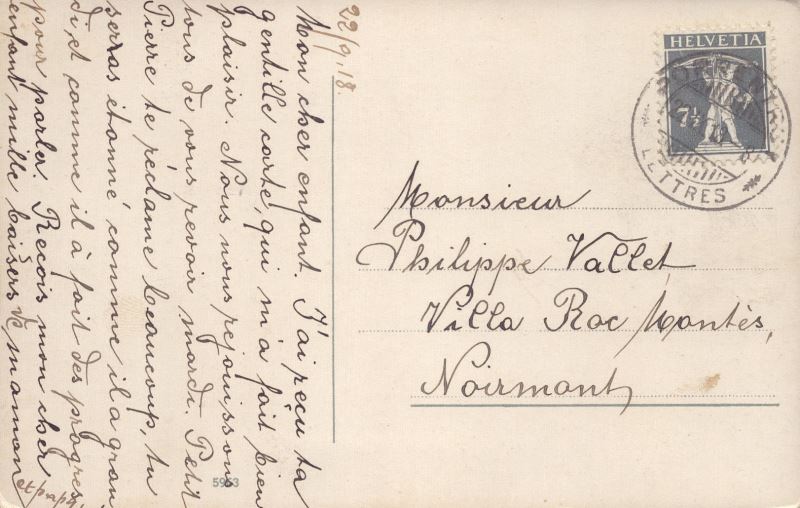 22/9.18.
Mon cher enfant. J'ai reçu ta
gentille carte, qui m'a fait bien
plaisir. Nous nous rejouissons
tous de vous revoir mardi. Petit
Pierre te réclame beaucoup, tu
serras étonné comme il a gran
di et comme il à fait des progrès
pour parler. Reçois mon cher
enfant mille baisers de maman
et papa
HELVETIA
7½
LETTRES
Monsieur
Philippe Vallet
Villa Roc Montès,
Noirmont
5953